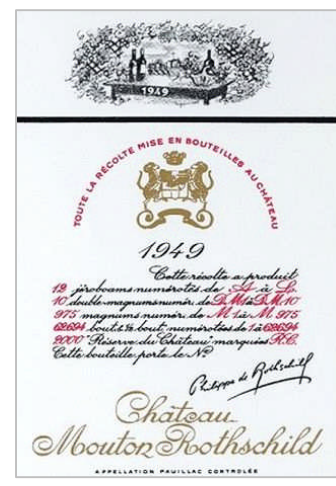 1949
TOUTE LA RÉCOLTE MISE EN BOUTEILLES AU CHÂTEAU
1949
Cette récolte a produit
12 jéroboams numérotés de A à L.
10 double-magnums numér. de D.M 1 à D.M 10
975 magnums numér. de M 1 à M 975
62694 bout. & ½ bout. numérotées de 1 à 62694
2000 "Réserve du Château" marquées R.C.
Cette bouteille porte le Nº
Philippe de Rothschild
Château
Mouton Rothschild
APPELLATION PAUILLAC CONTRÔLÉE